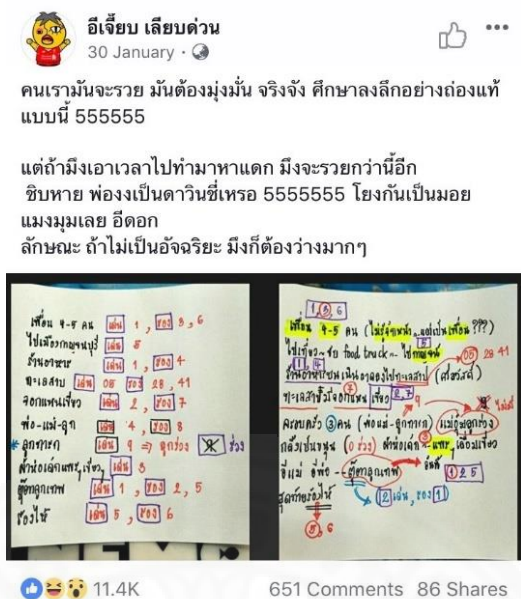 อีเจี๊ยบ เลียบด่วน
30 January ·
คนเรามันจะรวย มันต้องมุ่งมั่น จริงจัง ศึกษาลงลึกอย่างถ่องแท้
แบบนี้ 555555
แต่ถ้ามึงเอาเวลาไปทำมาหาแดก มึงจะรวยกว่านี้อีก
ชิบหาย พ่องงเป็นดาวินชี่เหรอ 5555555 โยงกันเป็นมอย
แมงมุมเลย อีดอก
ลักษณะ ถ้าไม่เป็นอัจฉริยะ มึงก็ต้องว่างมากๆ
เพื่อน 4-5 คน เด่น 1 , รอง 3, 6
ไปเมืองกาญจนบุรี เด่น 5
ร้านอาหาร เด่น 1 , รอง 4
ทะเลสาบ เด่น 05 รอง 28, 41
จอกแหนเขียว เด่น 2 , รอง 7
พ่อ-แม่-ลูก เด่น 4, รอง 8
* ลูกทารก เด่น 9 ⇒ ลูกร่วง ร่วง
ผ้าห่อเด็กแพรเขียว เด่น 3
ตุ๊กตาลูกเทพ เด่น 1 , รอง 2, 5
ร้องไห้ เด่น 5 , รอง 6
1, 3, 6
เพื่อน 4-5 คน (ไม่รู้จักหน้า เพื่อน ???)
ไปเที่ยว ~ food truck ~ ไป
05 28 41
1, 4
ทะเลสาบ
จอกแหน เขียว 2, 7
9
ไม่มี
ครอบครัว 3 คน (พ่อแม่-ลูกทารก) แม่อุ้มลูกร่วง
(0 ร่วง) ผ้าห่อเด็ก ~ แพร
ตุ๊กตาลูกเทพ
1 2 5
(2 เด่น, รอง 1)
ร้องไห้
5, 6
11.4K 651 Comments 86 Shares